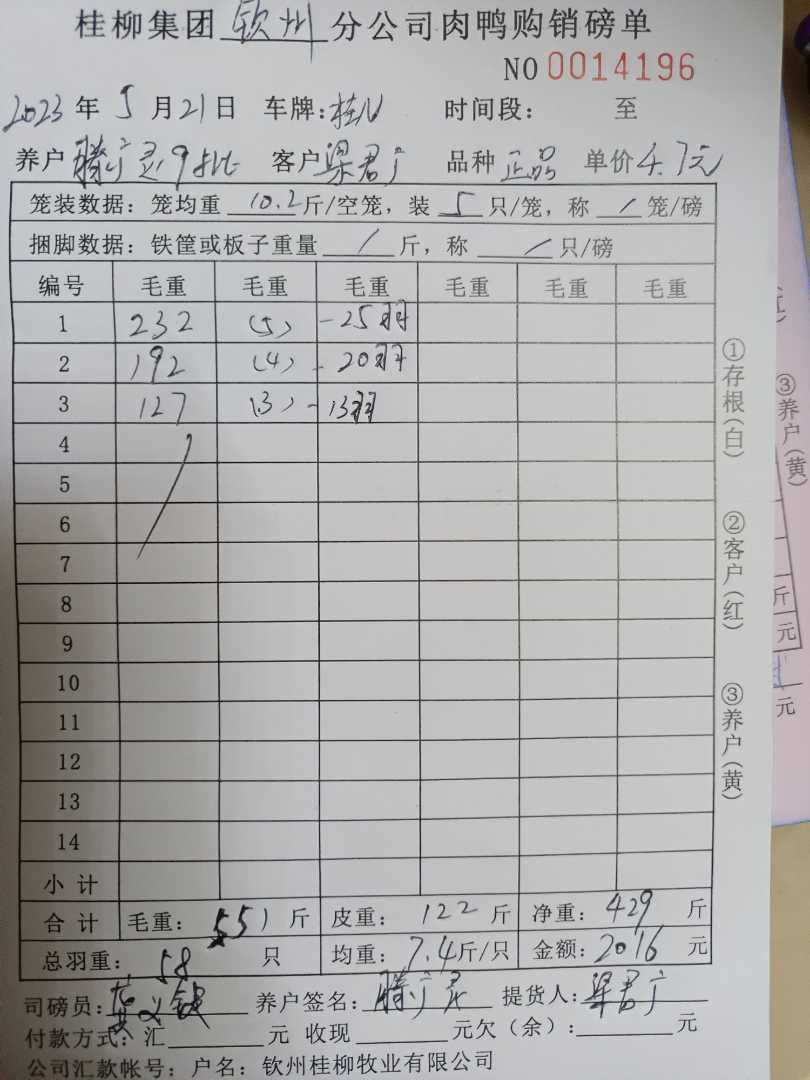 桂柳集团 钦州 分公司肉鸭购销磅单
NO 0014196
2023 年 5 月 21 日 车牌:桂N 时间段: 至
养户 滕广灵9批 客户 梁君广 品种 正品 单价 4.7元
笼装数据:笼均重 10.2 斤/空笼,装 5 只/笼,称 / 笼/磅
捆脚数据:铁筐或板子重量 / 斤,称 / 只/磅
编号 毛重 毛重 毛重 毛重 毛重 毛重
1 232 (5) -25羽
2 192 (4) -20羽
3 127 (3) -13羽
4
5
6
7
8
9
10
11
12
13
14
小计
合计 毛重: 551 斤 皮重: 122 斤 净重: 429 斤
总羽重: 58 只 均重: 7.4 斤/只 金额: 2016 元
司磅员: 养户签名: 滕广灵 提货人: 梁君广
付款方式:汇 元 收现 元欠(余): 元
公司汇款帐号:户名:钦州桂柳牧业有限公司
①存根(白) ②客户(红) ③养户(黄)
③养户(黄)
斤
元
元